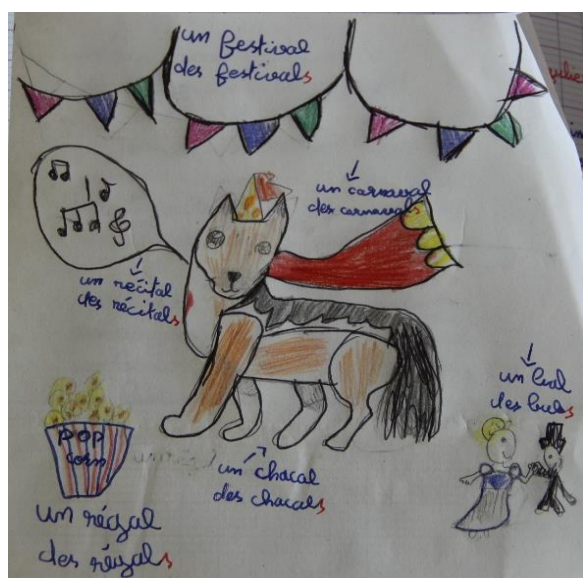 un festival
des festivals
un carnaval
des carnavals
un récital
des récitals
un bal
des bals
POP
CORN
un chacal
des chacals
un régal
des régals